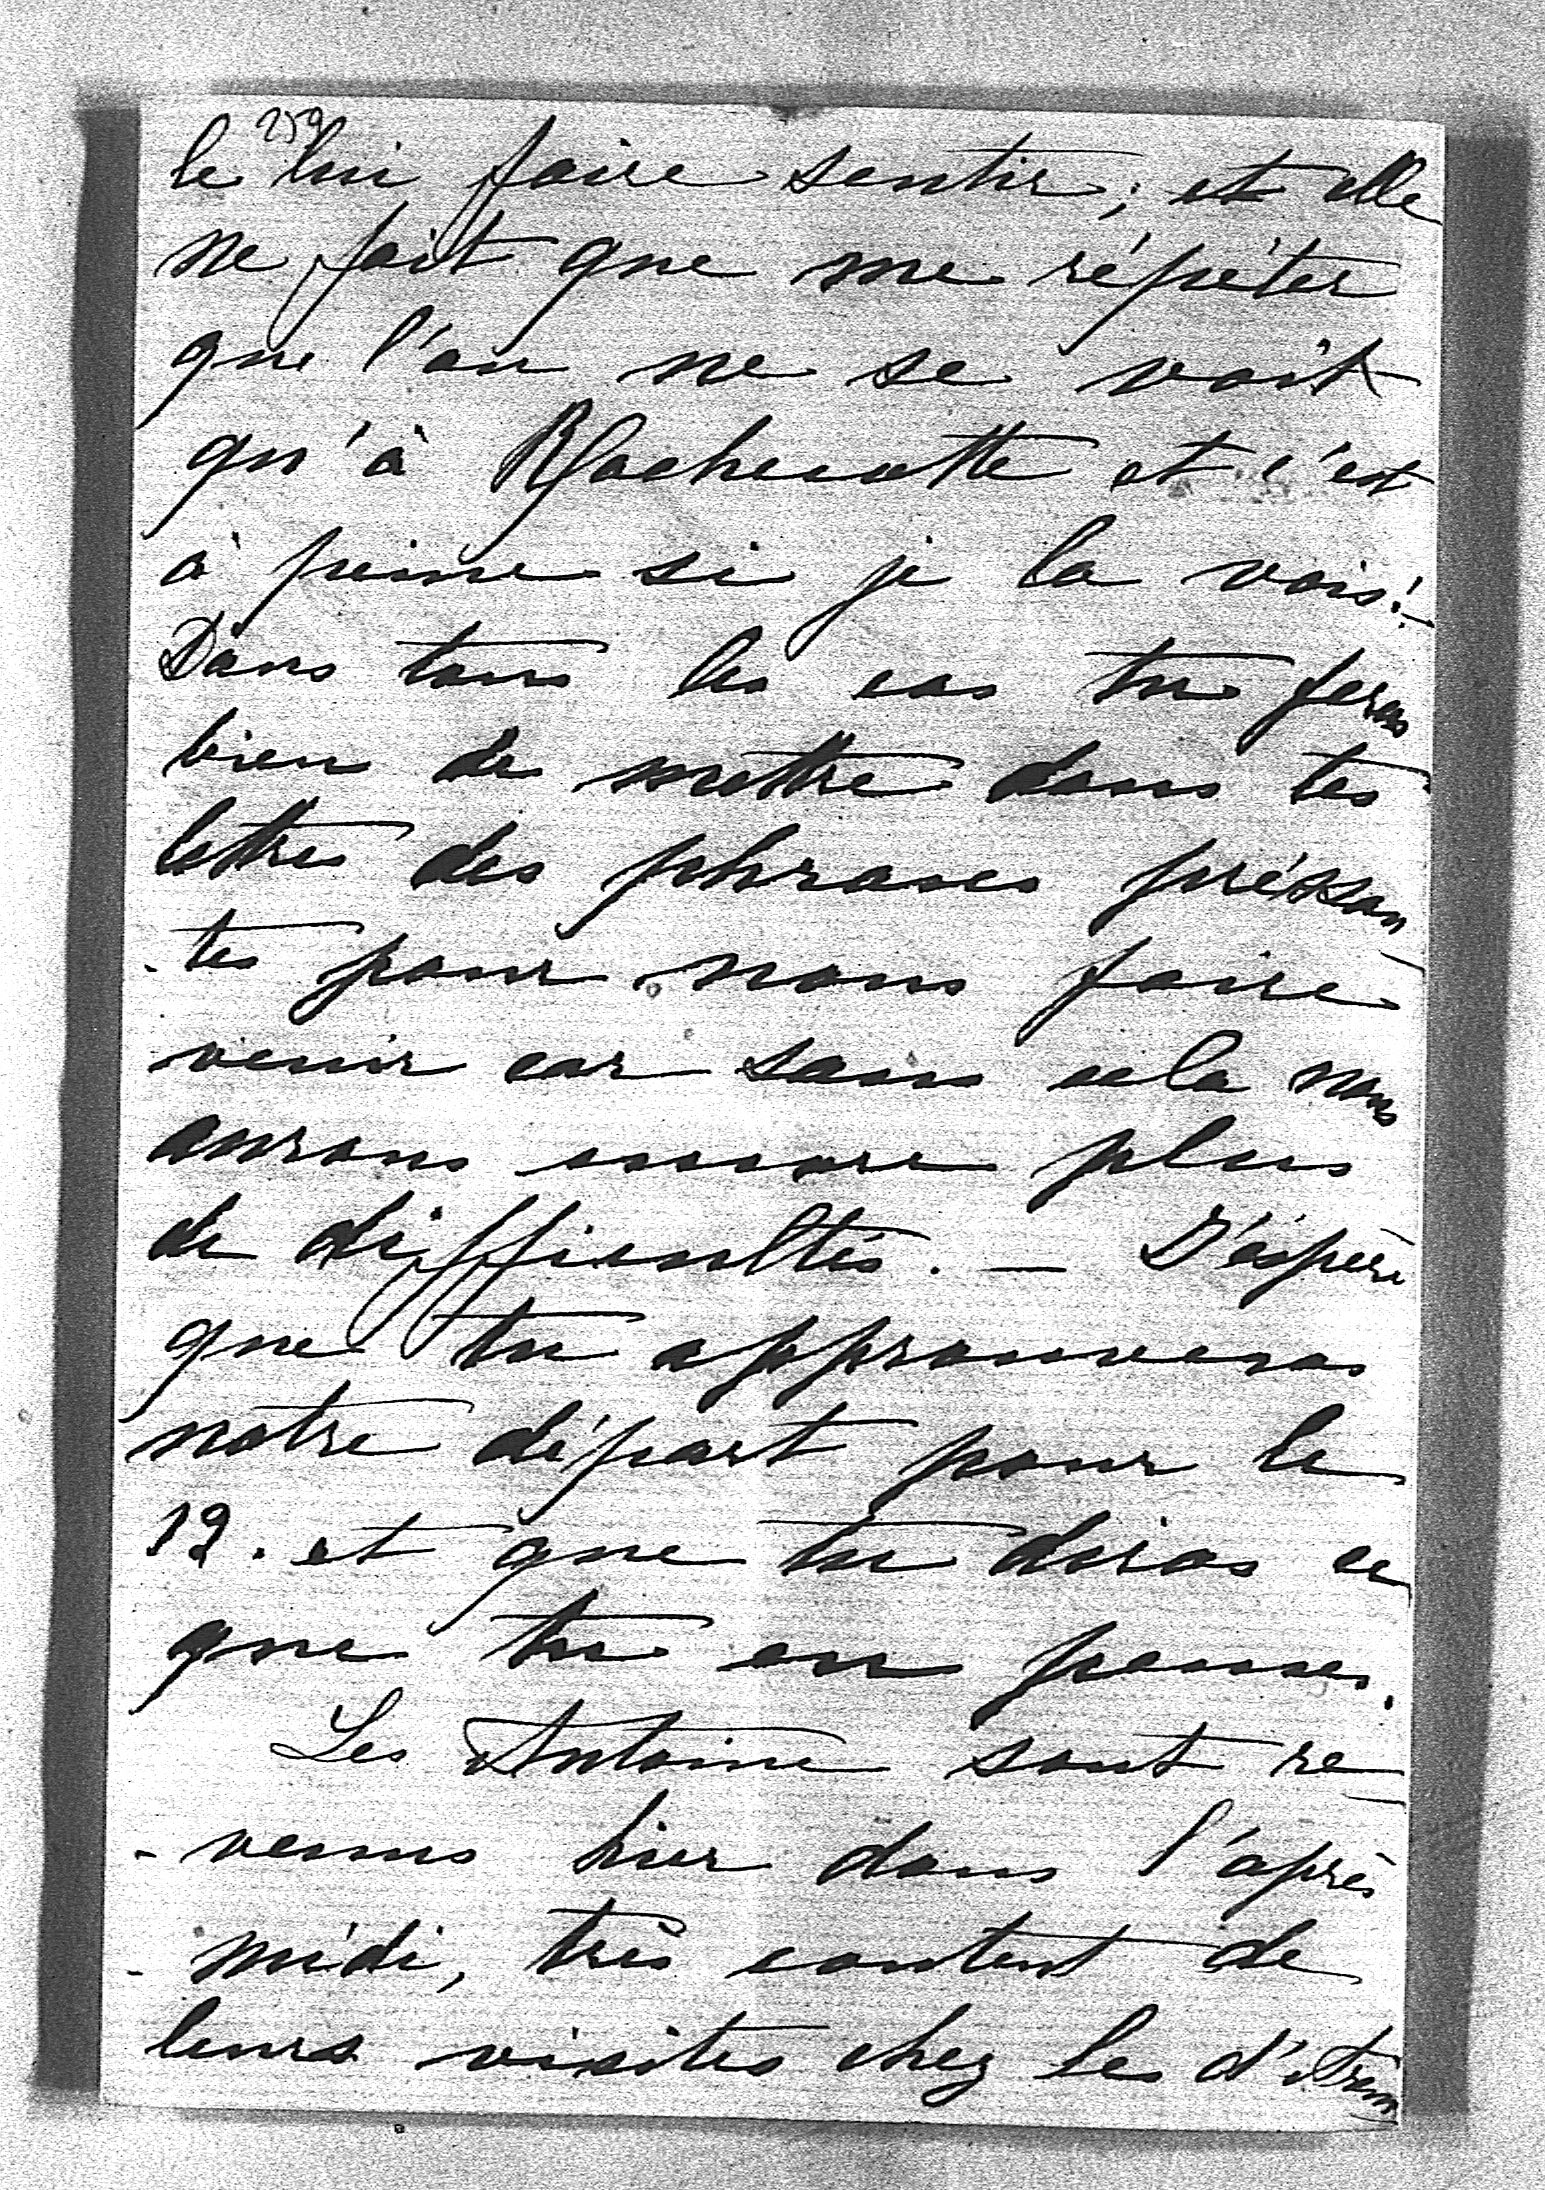 259
le lui faire sentir; et elle
ne fait que me répéter
que l'on ne se voit
qu'à Rochecotte et c'est
à peine si je la vois!
Dans tous les cas tu feras
bien de mettre dans tes
lettres des phrases préssan
-tes pour nous faire
venir car sans cela nous
aurons encore plus
de difficultés. — J'éspère
que tu approuveras
notre départ pour le
12. et que tu diras ce
que tu en penses.
Les Antoine sont re
-venus hier dans l'après
-midi, très content de
leurs visites chez les